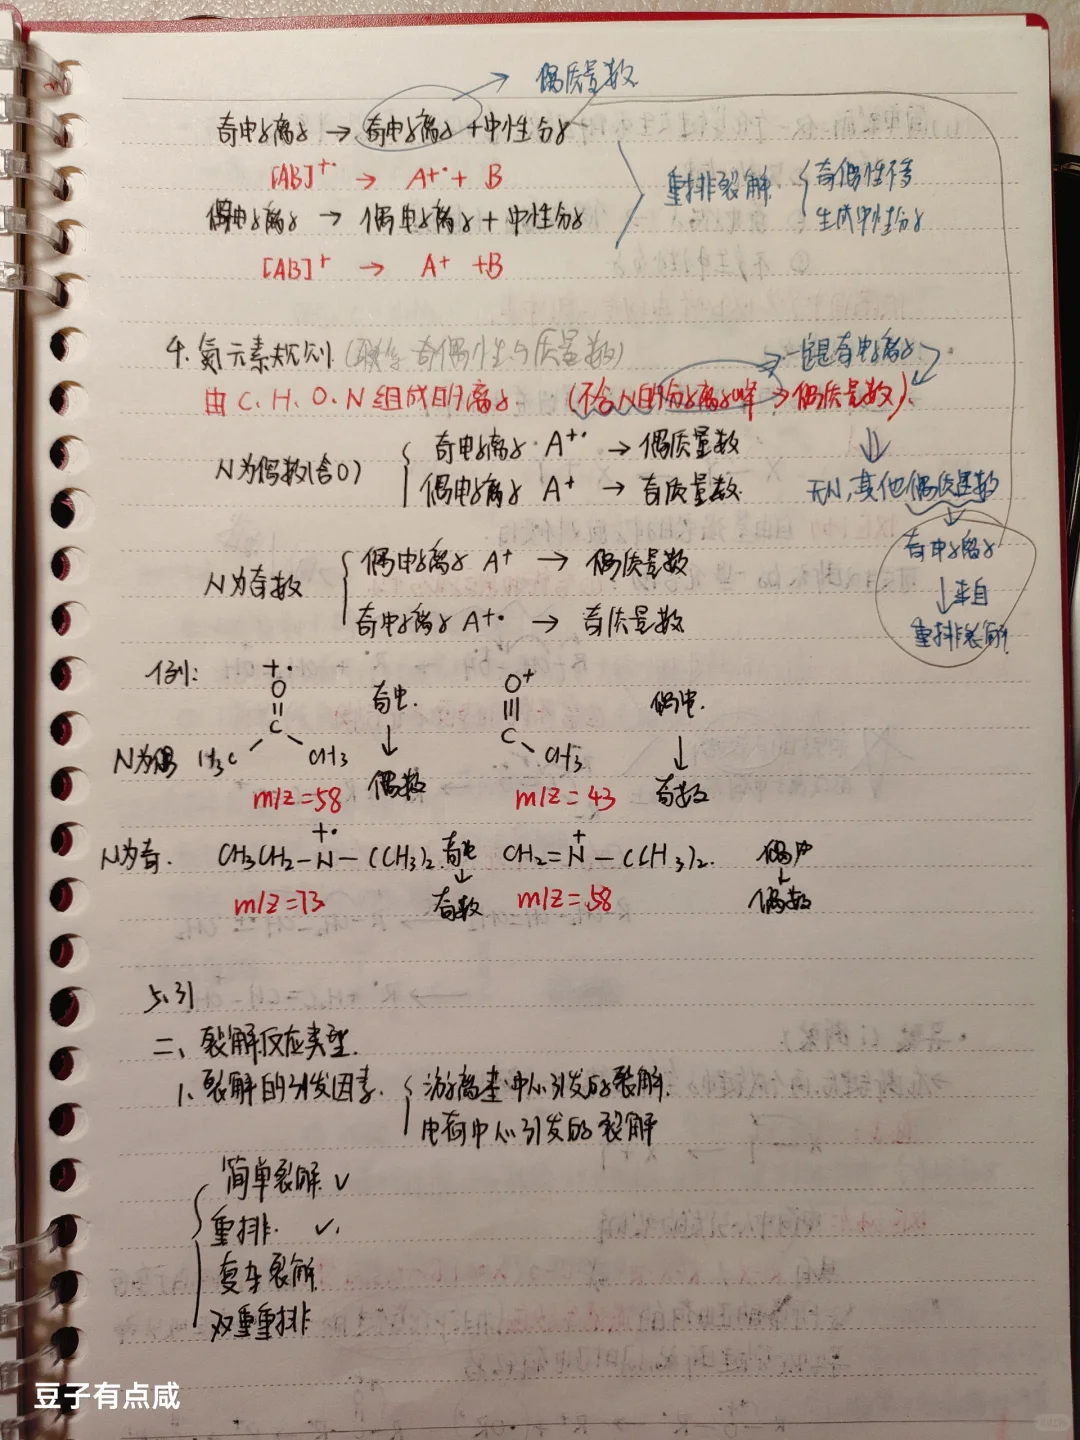 → 偶质量数
奇电子离子 → 奇电子离子 + 中性分子
[AB]⁺· → A⁺· + B
偶电子离子 → 偶电子离子 + 中性分子
[AB]⁺ → A⁺ + B
重排裂解 { 奇偶性不变
生成中性分子
4. 氮元素规则 (联系奇偶性与质量数)
→ 一定是奇电子离子
由C、H、O、N组成的离子 (不含N的分子离子峰 → 偶质量数)
N为偶数(含0) { 奇电子离子 A⁺· → 偶质量数
偶电子离子 A⁺ → 奇质量数
⇓
无N,其他偶质量数
↓
奇电子离子
↓来自
重排裂解
N为奇数 { 偶电子离子 A⁺ → 偶质量数
奇电子离子 A⁺· → 奇质量数
例:
N为偶
+·
O
||
C
H₃C CH₃
m/z=58
奇电
↓
偶数
O⁺
|||
C
CH₃
m/z=43
偶电
↓
奇数
N为奇. CH₃CH₂–N⁺·–(CH₃)₂ 奇电
↓
m/z=73 奇数
CH₂=N⁺–(CH₃)₂. 偶电
↓
m/z=58 偶数
5.31
二、裂解反应类型.
1、裂解的引发因素. { 游离基中心引发的裂解.
电荷中心引发的裂解
{ 简单裂解 ✓
重排. ✓.
复杂裂解
双重重排
豆子有点咸